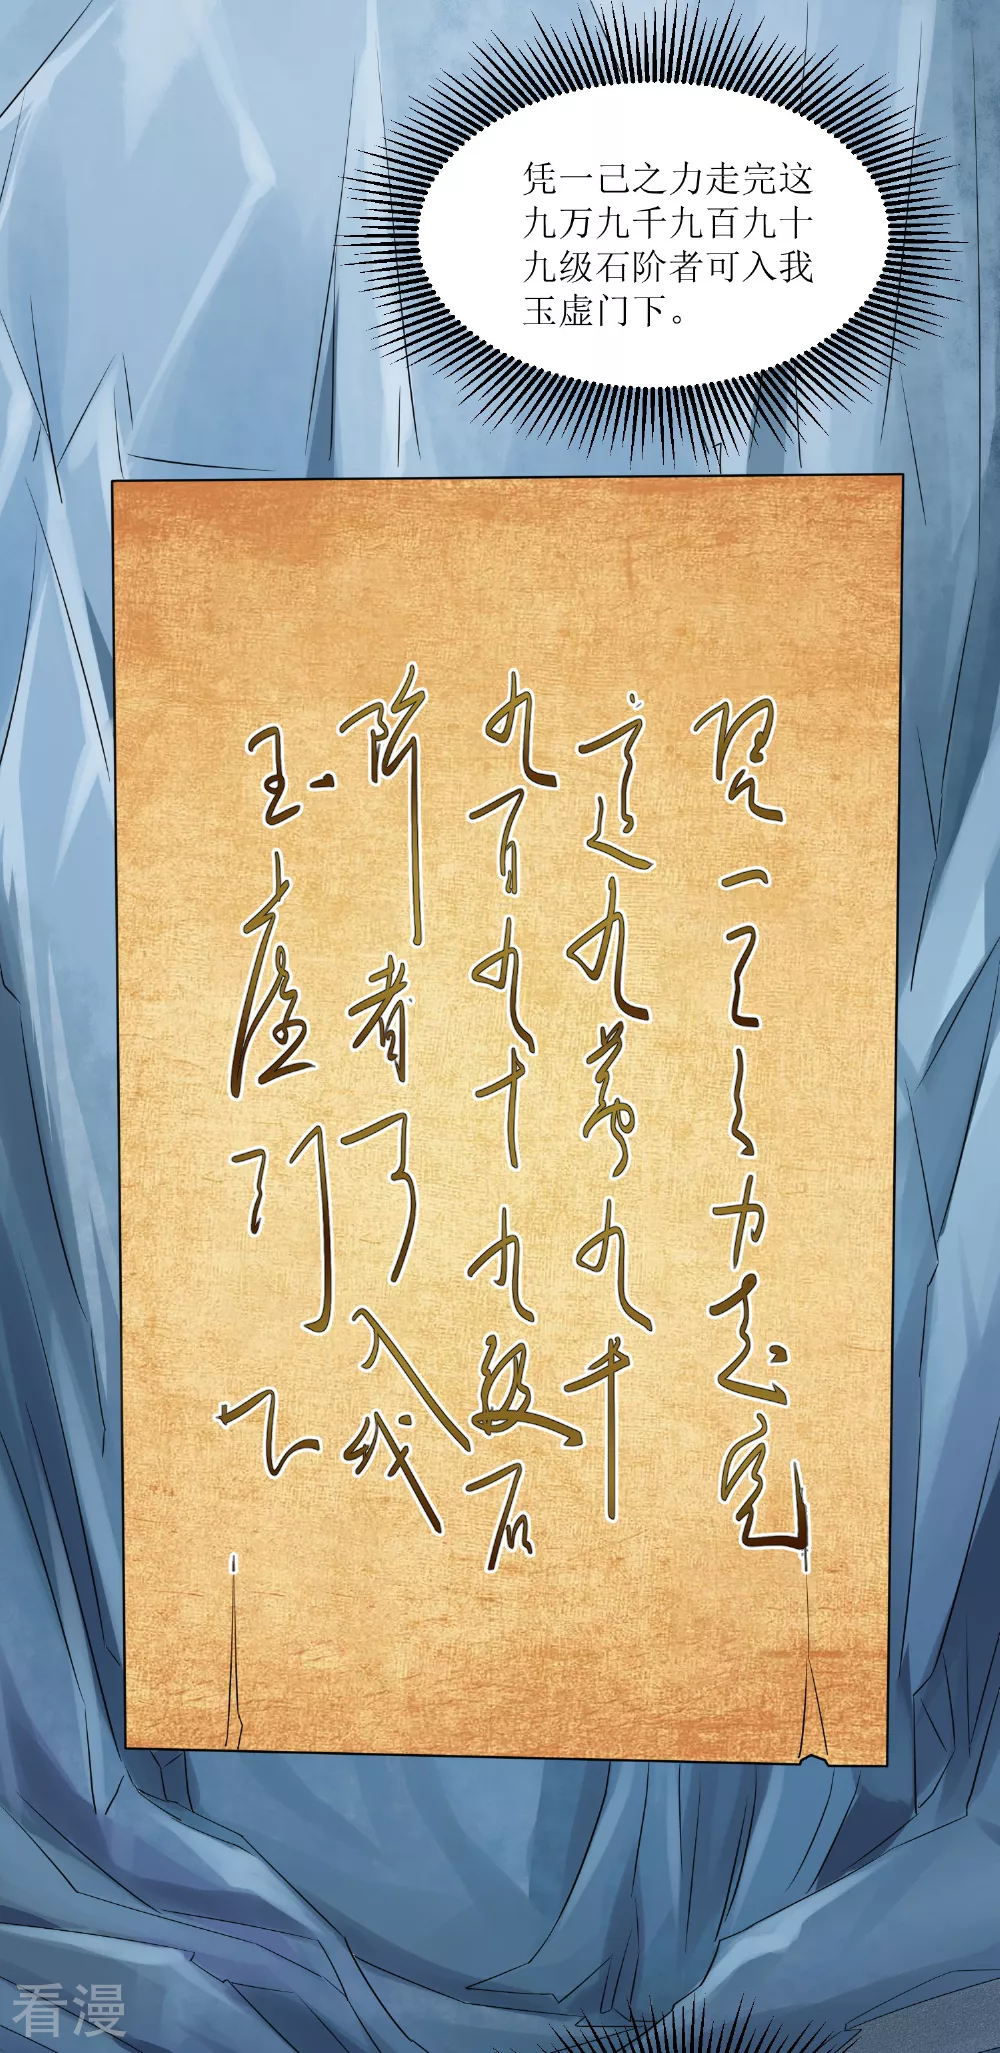 凭一己之力走完这
九万九千九百九十
九级石阶者可入我
玉虚门下。
凭一己之力走完
这九萬九千
九百九十九级石
阶者可入我
玉虚门下
看漫